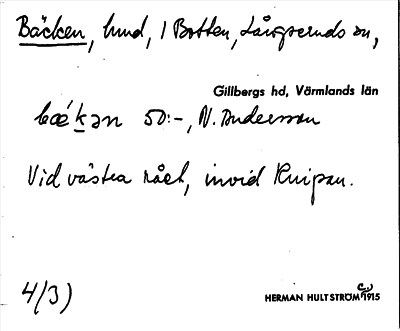 Bäcken, hmd, 1 Botten, Långseruds sn,
Gillbergs hd, Värmlands län
bǽkən 50:-, N. Andersson
Vid västra rået, invid Knipan.
4/3)
HERMAN HULTSTRÖM 1915